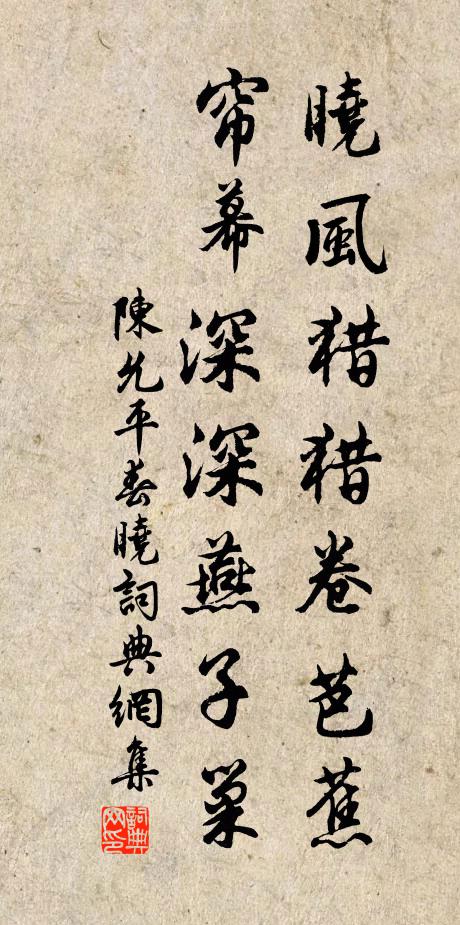 曉風猎猎卷芭蕉
帘幕深深燕子巢
陳允平春曉詞典網集
詞典
网印